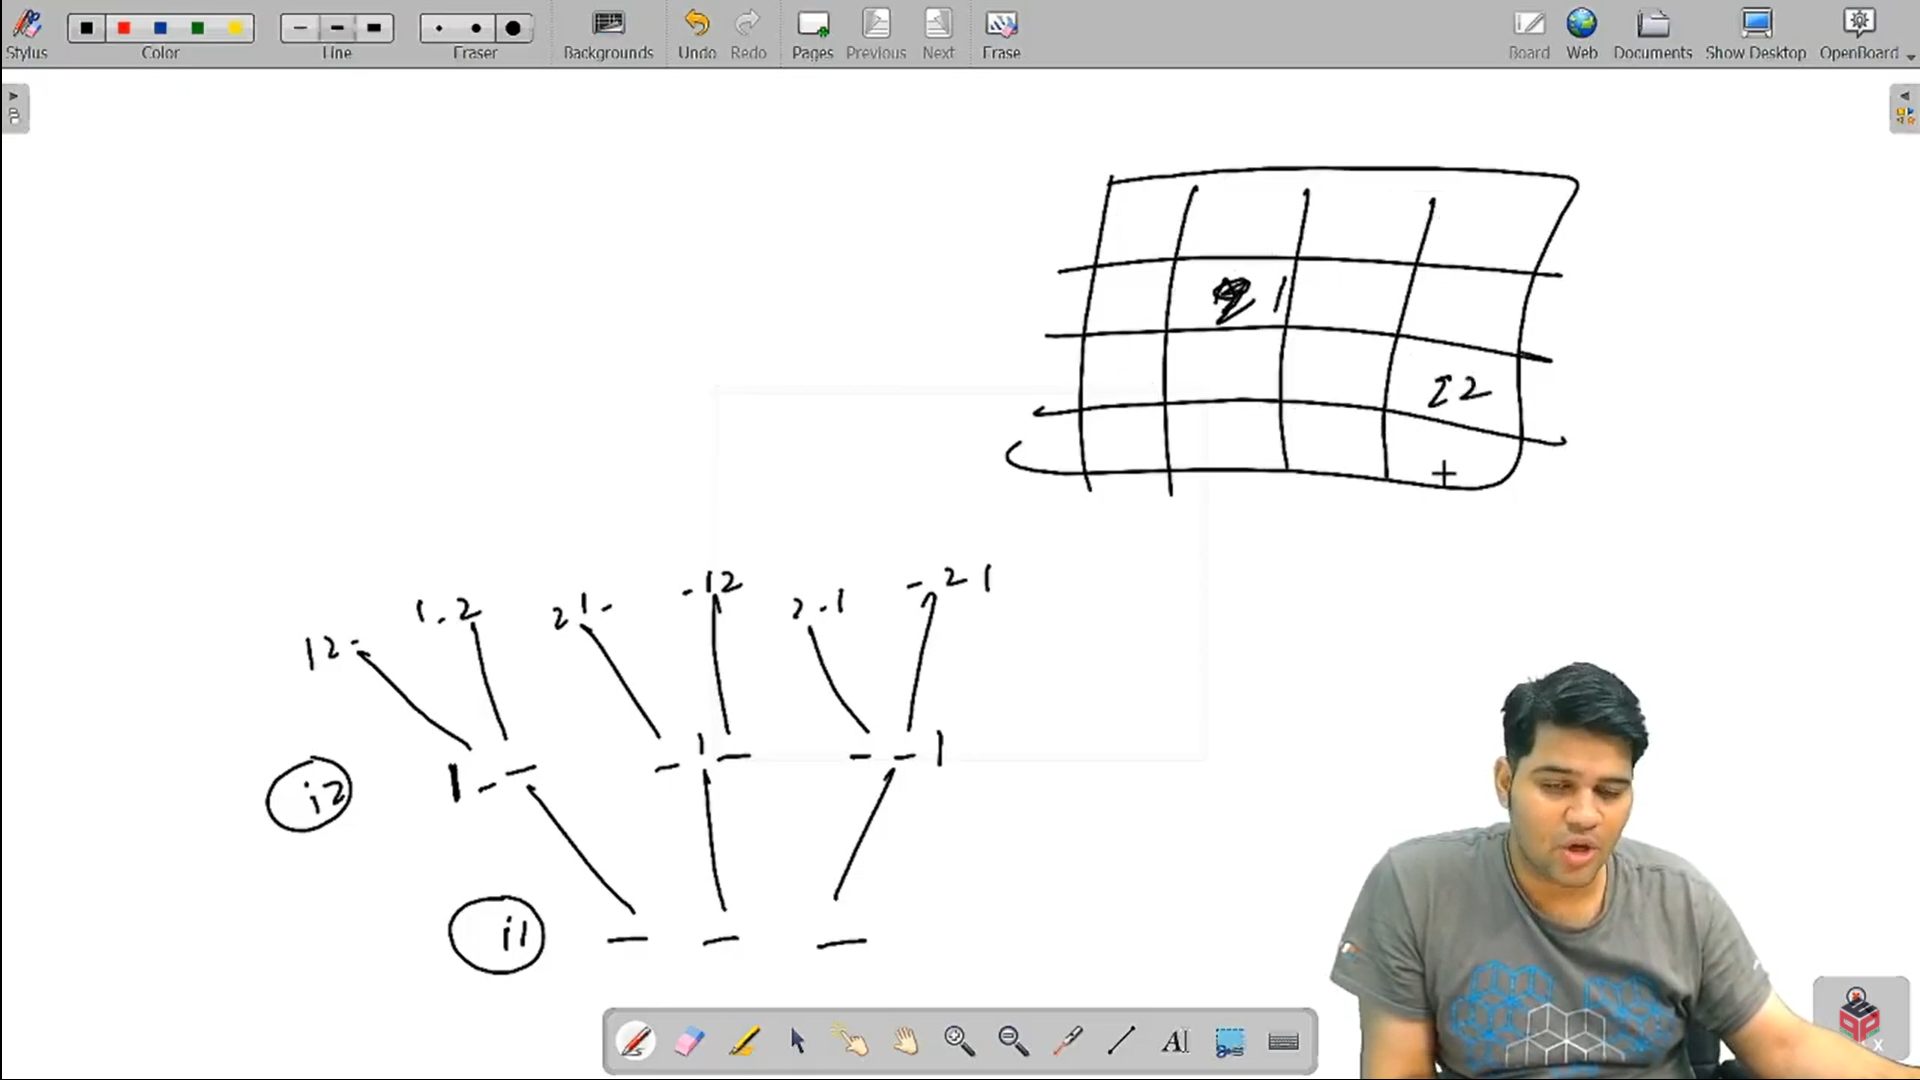 Stylus
Color
Line
Eraser
Backgrounds
Undo
Redo
Pages
Previous
Next
Erase
Board
Web
Documents
Show Desktop
OpenBoard
1
2
12-
1-2
21-
-12
2-1
-21
i2
1--
-1-
--1
i1
- - -